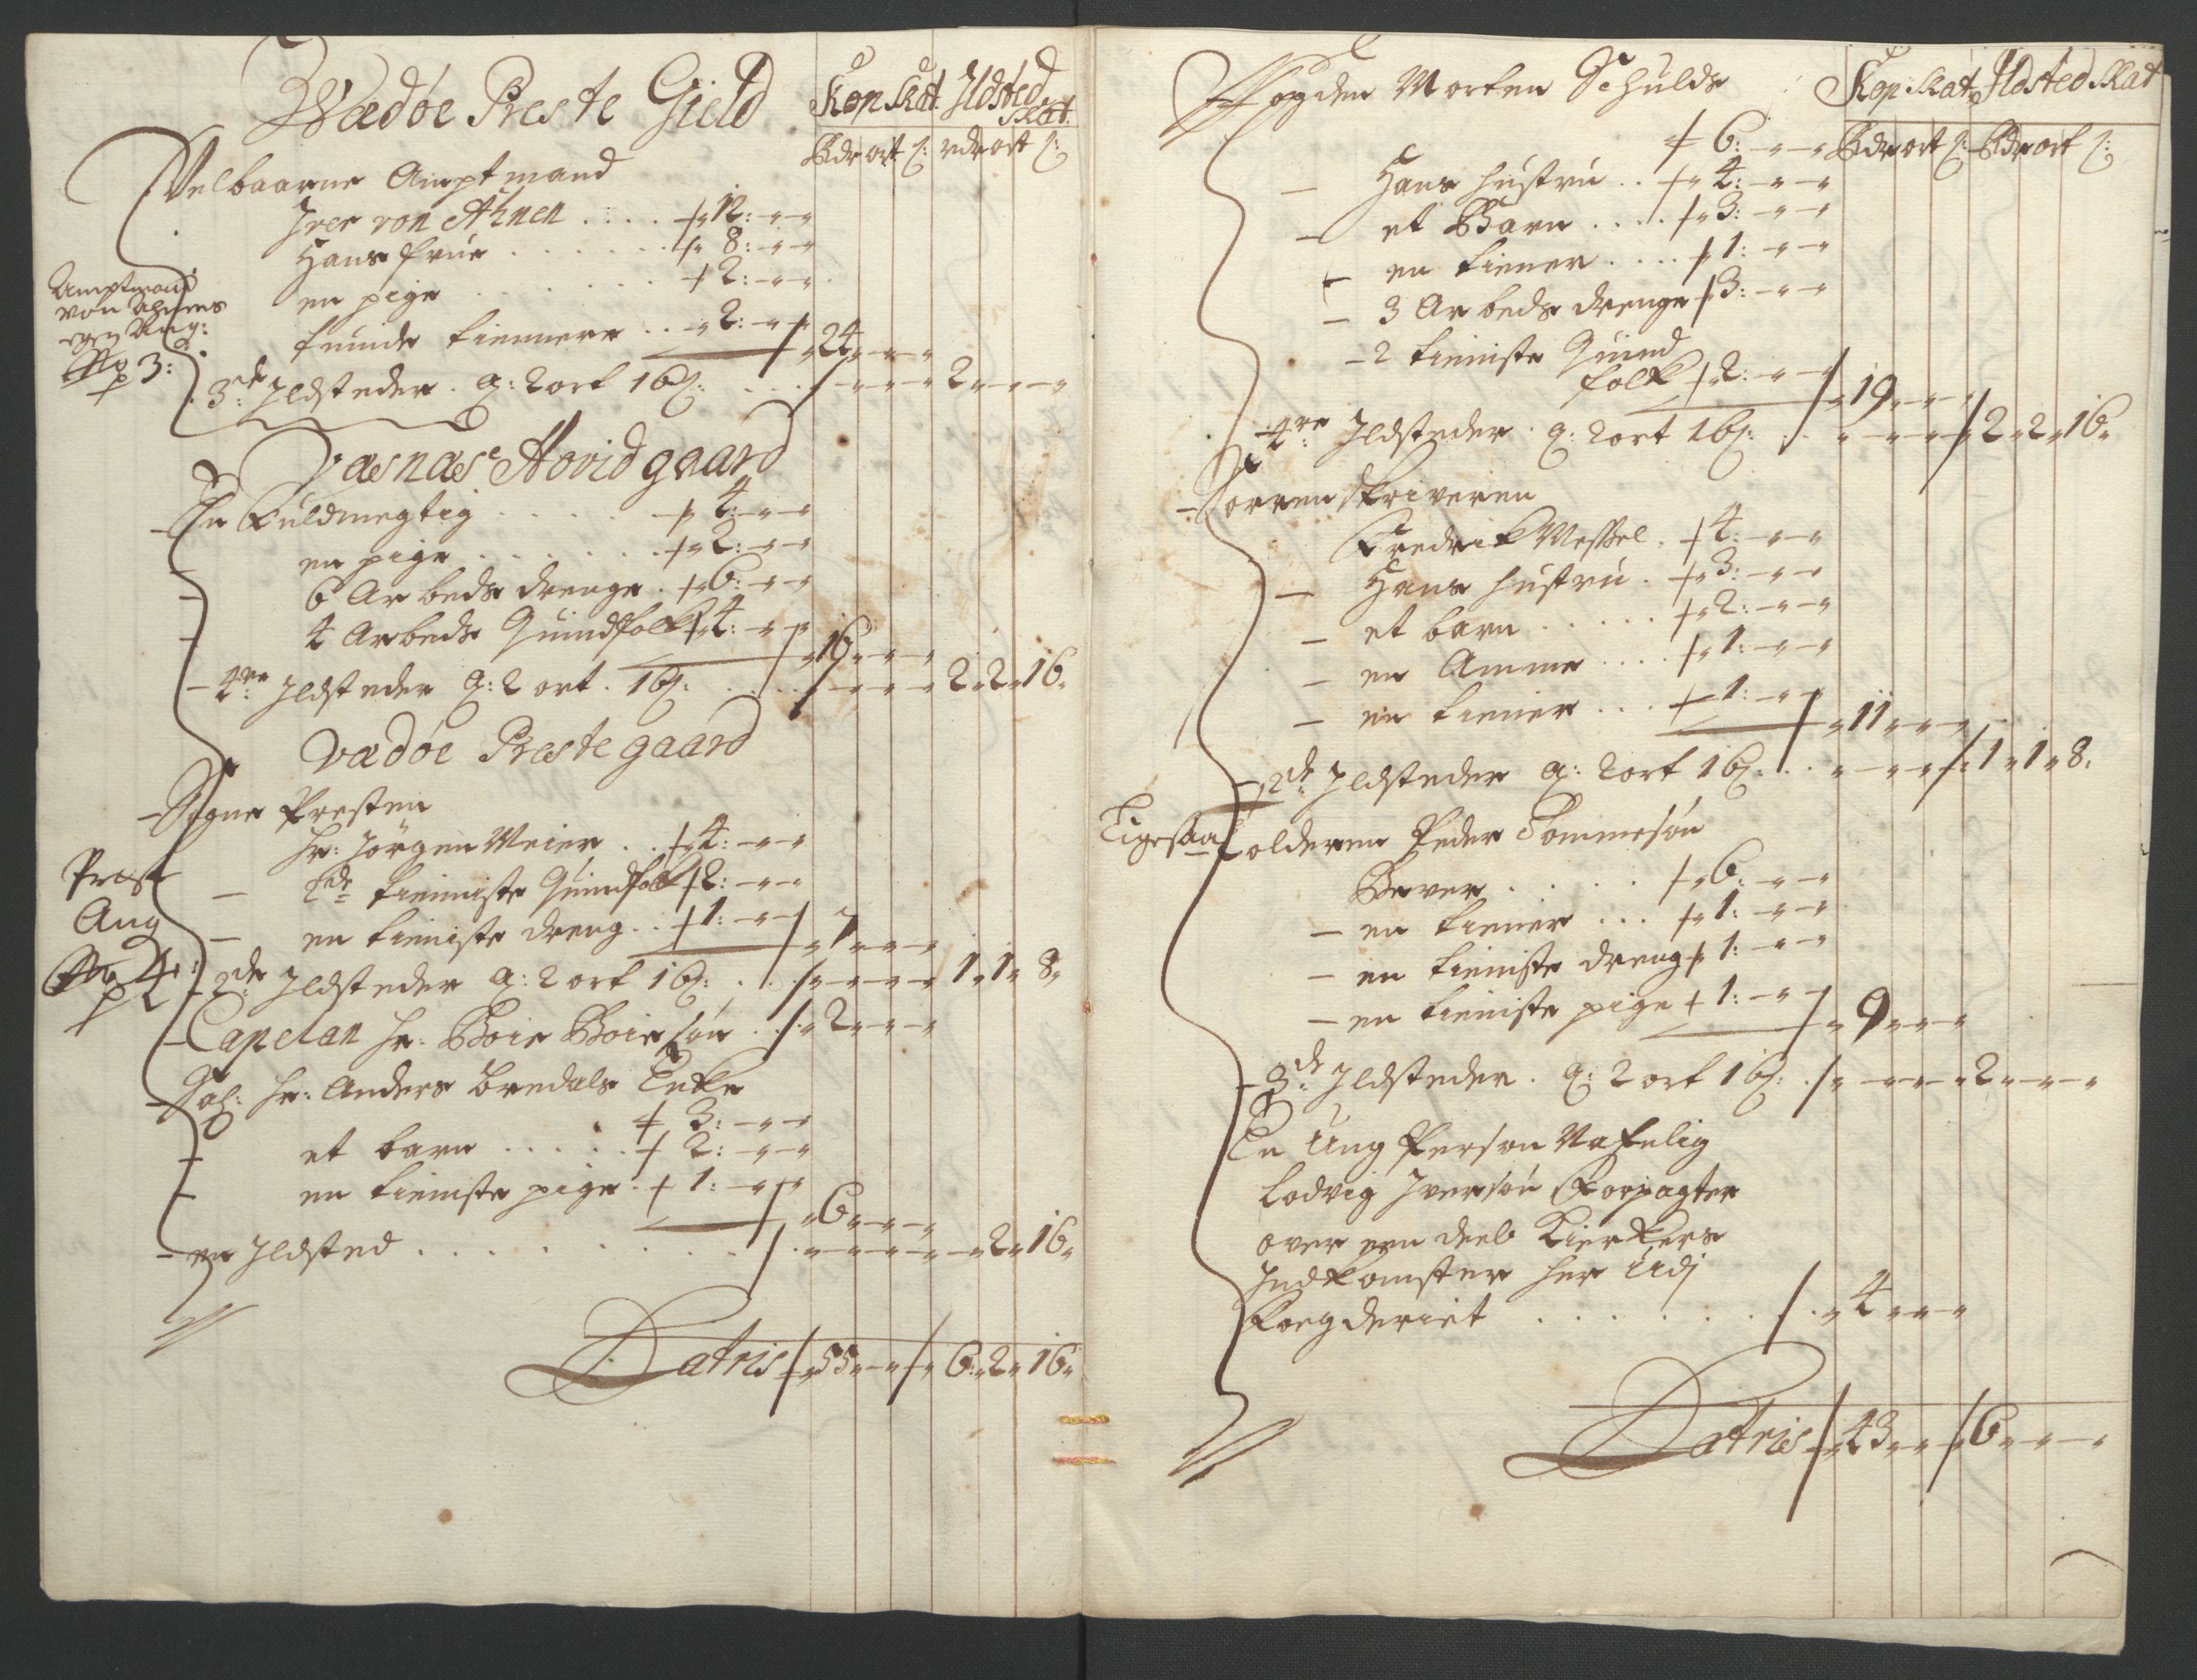 Wedøe Preste Gield
Kop Skat Ildsted Skat
Rdr ort ß: rdr ort ß:
Velbaarne Amptmand
Iver von Ahnen .... 12:
Hans frue ...... 8:
en pige ...... 2:
tuinde tiennere .. 2: 24
3de Ildsteder. a: 2 ort 16ß: ... 2
Amptmand
von Ahnens
egen Ang:
No 3:
Næsnæs Hovidgaard
En Fuldmegtig ..... 4:
en pige ...... 2:
6 Arbeds drenge . 6:
4 Arbeds Quindfolk 4: 16
4re Ildsteder a: 2 ort. 16ß: .... 2 2 16
Vedøe Præstegaard
Sogne Presten
Hr: Jørgen Meier .. 4:
2de tieniste Quindfolk 2:
en tieniste dreng .. 1: 7
Præst
Ang
No 4:
2de Ildsteder a: 2 ort 16ß: ... 1 1 8
Capelan Hr: Boie Boiesøn .. 2
Sal: Hr: Anders Bredals Enke
3:
et barn ..... 2:
en tieniste pige . 1: 6
en Ildsted ......... 2 16
Latris 55 6 2 16
Fogden Morten Schulds
Kop Skat Ildsted Skat
6: Rdr ort ß: Rdr ort ß:
Hans hustru .. 4:
et Barn .... 3:
en tiener .... 1:
3 Arbeds drenge 3:
2 tieniste Quind
folk 2: 19
4re Ildsteder. a: 2 ort 16ß: .. 2 2 16
Sorrenskriveren
Fredrik Wessel. 4:
Hans hustru . 3:
et barn ..... 2:
en Amme .... 1:
en tiener ... 1: 11
2de Ildsteder a: 2 ort 16ß: .. 1 1 8
Ligesaa
Tolderen Peder Tommesøn
Bever .... 6:
en tiener ... 1:
en tieniste dreng 1:
en tieniste pige 1: 9
3de Ildsteder. a: 2 ort 16ß: . 2
En Ung Person Nafnlig
Lodvig Iversøn Forpagter
over een deel Kierkers
Indkomster her Udj
Foegderiet ...... 4
Latris 43 6